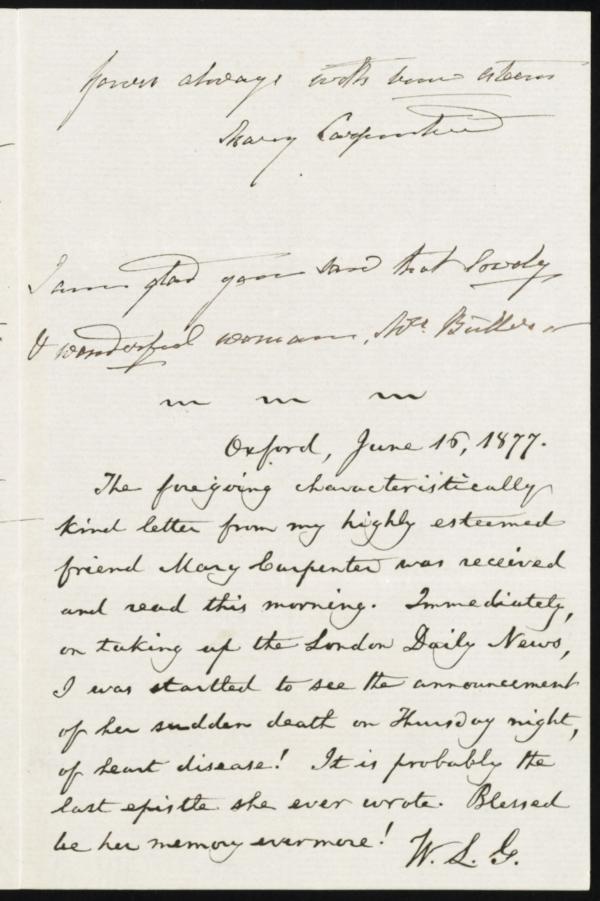 Yours always with true esteem
Mary Carpenter
I am glad you saw that lovely
& wonderful woman, Mrs. Butler
Oxford, June 16, 1877.
The foregoing characteristically
kind letter from my highly esteemed
friend Mary Carpenter was received
and read this morning. Immediately,
on taking up the London Daily News,
I was startled to see the announcement
of her sudden death on Thursday night,
of heart disease! It is probably the
last epistle she ever wrote. Blessed
be her memory evermore!
W. L. G.